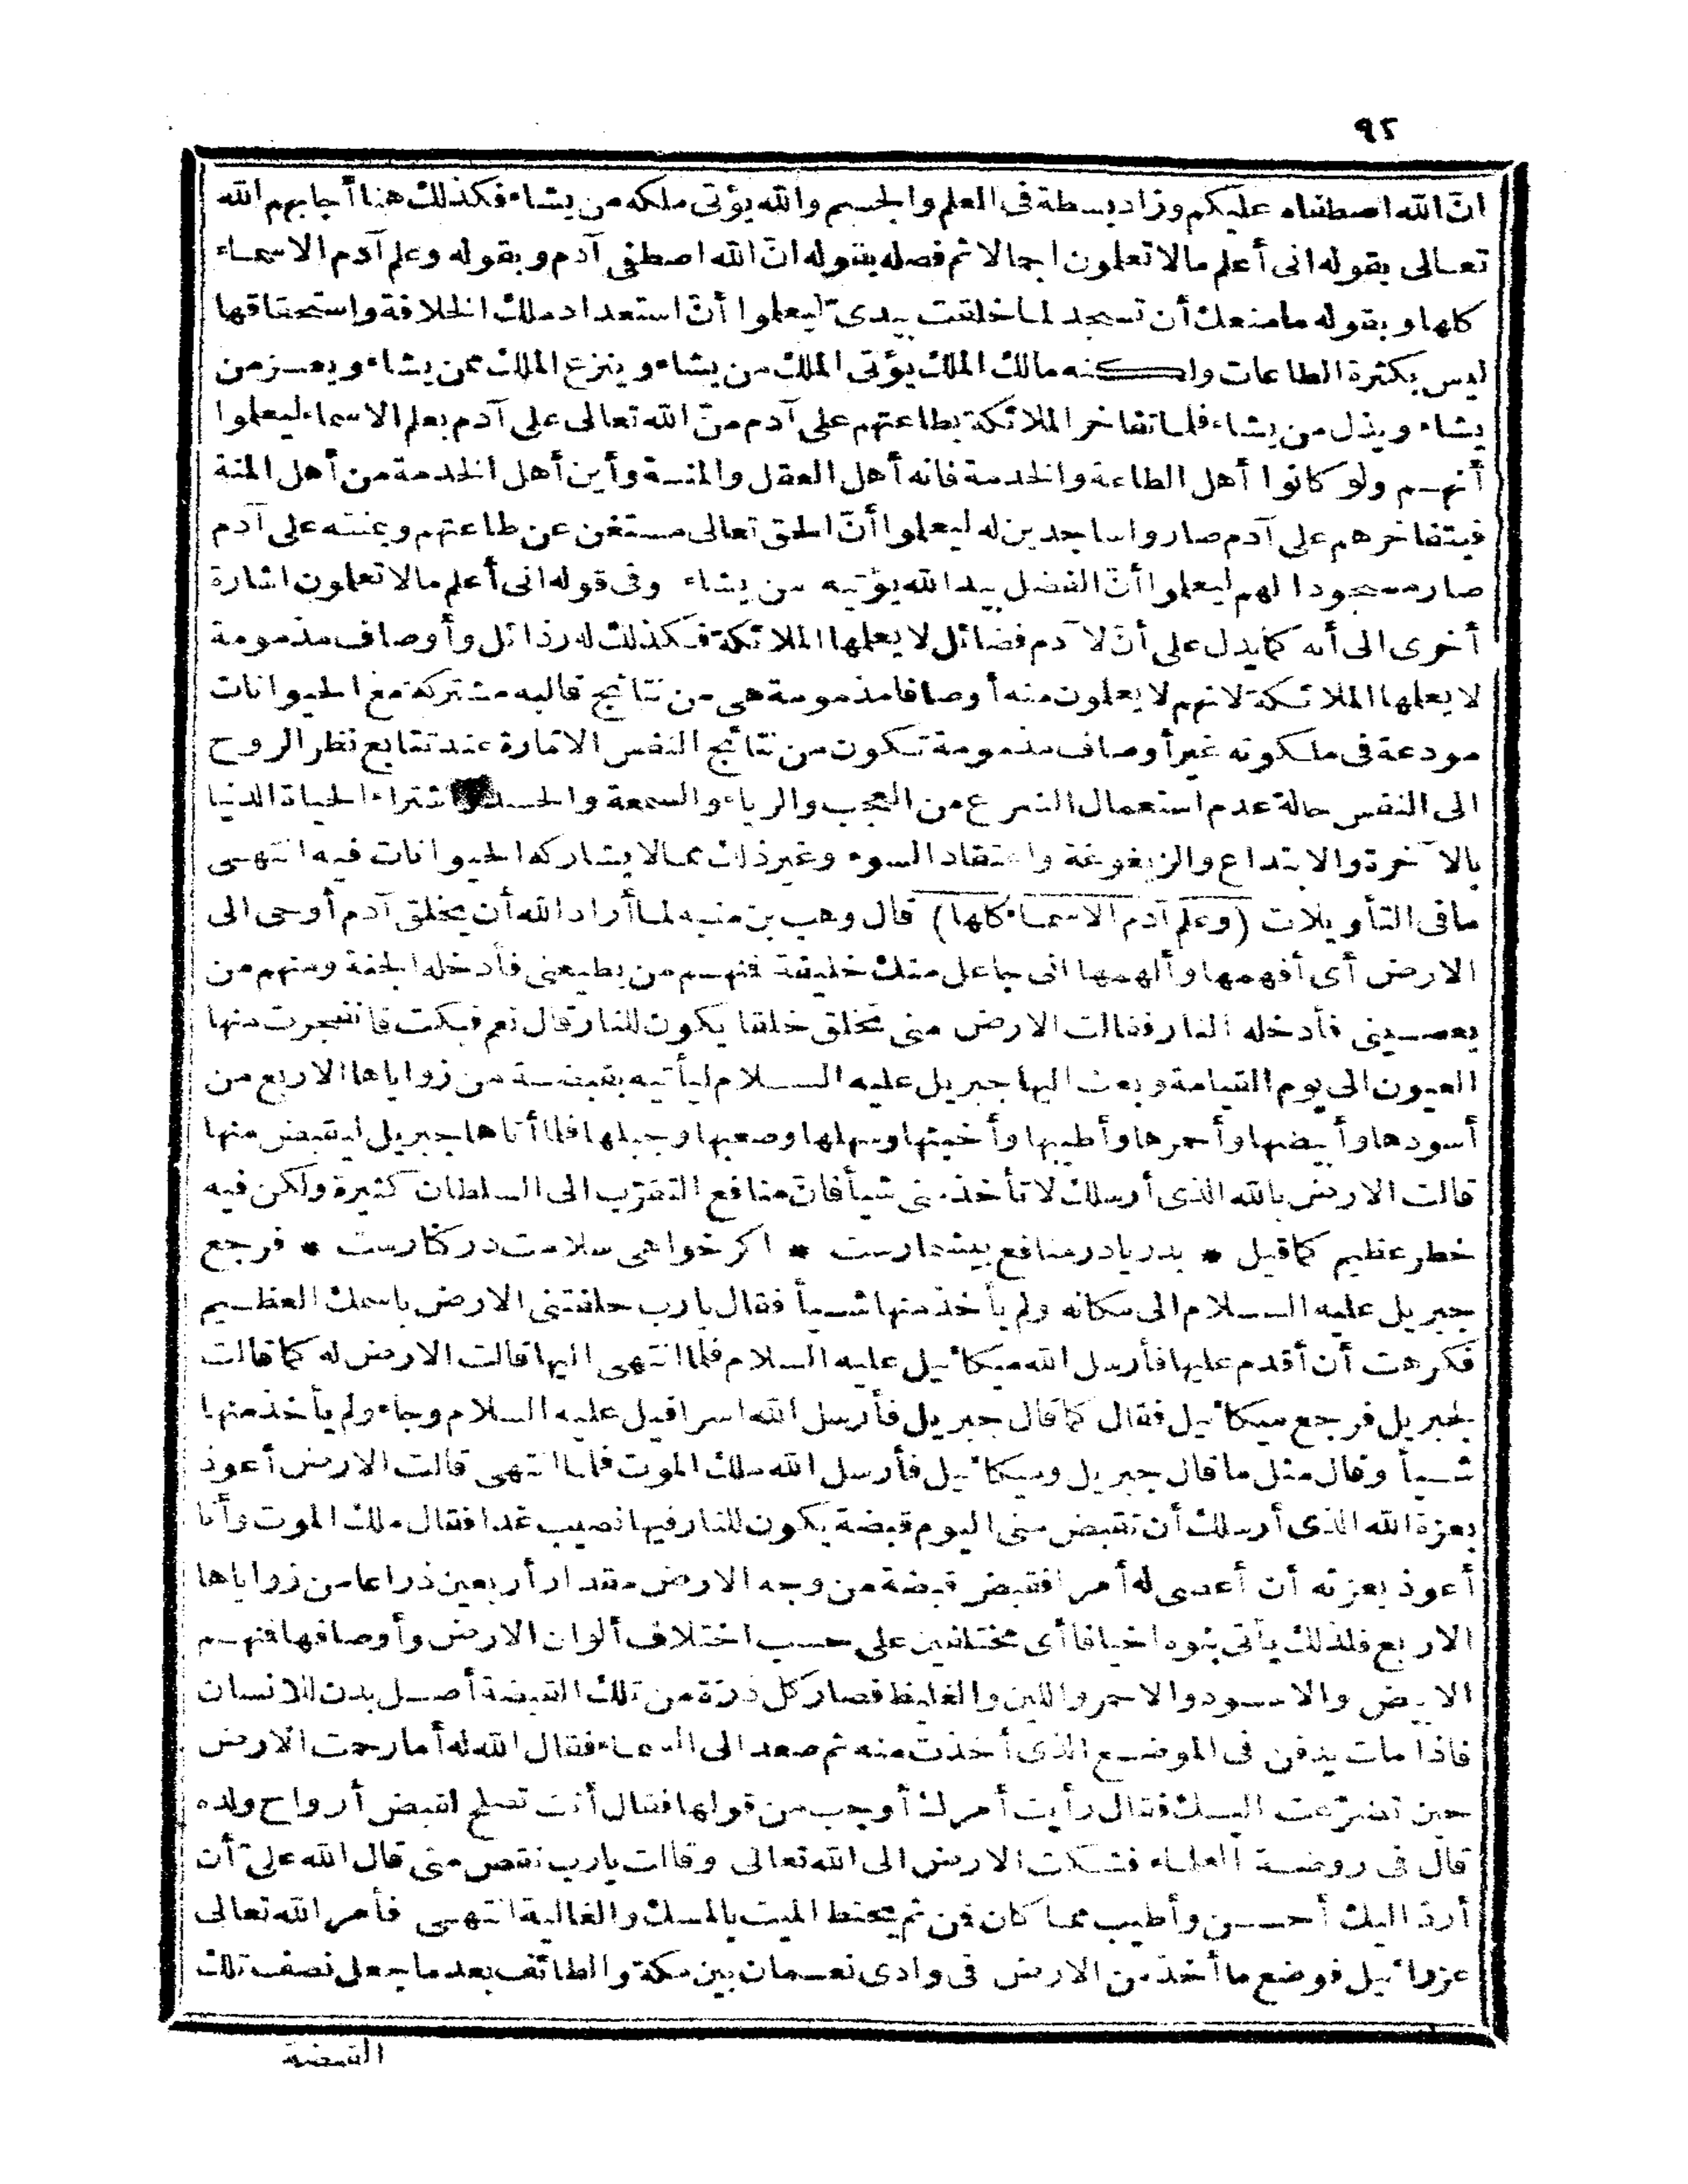 ٩٥
انّ الله اصطفاه عليكم وزاد بسطة فى العلم والجسم والله يؤتى ملكه من يشاء فكذلك هنا أجابهم الله
تعالى بقوله انى أعلم مالا تعلمون اجمالا ثم فصله بقوله انّ الله اصطفى آدم وبقوله وعلم آدم الاسماء
كلها وبقوله ما منعك أن تسجد لما خلقت بيدىّ ليعلموا أنّ استعداد ملك الخلافة واستحقاقها
ليس بكثرة الطاعات ولكنه مالك الملك يؤتى الملك من يشاء وينزع الملك ممن يشاء ويعز من
يشاء ويذل من يشاء فلما تفاخر الملائكة بطاعتهم على آدم منّ الله تعالى على آدم بعلم الاسماء ليعلموا
أنهم ولو كانوا أهل الطاعة والخدمة فانه أهل العقل والمنة وأين أهل الخدمة من أهل المنة
فبتفاخرهم على آدم صاروا ساجدين له ليعلموا أنّ الحق تعالى مستغن عن طاعتهم وبمنته على آدم
صار مسجودا لهم ليعلموا أنّ الفضل بيد الله يؤتيه من يشاء وفى قوله انى أعلم مالا تعلمون اشارة
أخرى الى أنه كما يدل على أنّ لآدم فضائل لا يعلمها الملائكة فكذلك له رذائل وأوصاف مذمومة
لا يعلمها الملائكة لانهم لا يعلمون منه أوصافا مذمومة هى من نتائج قالبه مشتركة مع الحيوانات
مودعة فى ملكوته غير أوصاف مذمومة تكون من نتائج النفس الامّارة عند تتابع نظر الروح
الى النفس حالة عدم استعمال الشرع من العجب والرياء والسمعة والحسد واشتراء الحياة الدنيا
بالآخرة والابتداع والزيغوغة واعتقاد السوء وغير ذلك مما لا يشاركه الحيوانات فيه انتهى
مافى التأويلات (وعلم آدم الاسماء كلها) قال وهب بن منبه لما أراد الله أن يخلق آدم أوحى الى
الارض أى أفهمها وألهمها انى جاعل منك خليفة فمنهم من يطيعنى فأدخله الجنة ومنهم من
يعصينى فأدخله النار فقالت الارض منى تخلق خلقا يكون للنار قال نعم فبكت فانفجرت منها
العيون الى يوم القيامة وبعث اليها جبريل عليه السلام ليأتيه بقبضة من زواياها الاربع من
أسودها وأبيضها وأحمرها وأطيبها وأخبثها وسهلها وصعبها وجبلها فلما أتاها جبريل ليقبض منها
قالت الارض بالله الذى أرسلك لا تأخذ منى شيأ فانّ منافع التقرّب الى السلطان كثيرة ولكن فيه
خطر عظيم كما قيل * بدريا در منافع بيشمارست * اكر خواهى سلامت در كنارست * فرجع
جبريل عليه السلام الى مكانه ولم يأخذ منها شيأ فقال يا رب حلفتنى الارض باسمك العظيم
فكرهت أن أقدم عليها فأرسل الله ميكائيل عليه السلام فلما انتهى اليها قالت الارض له كما قالت
لجبريل فرجع ميكائيل فقال كما قال جبريل فأرسل الله اسرافيل عليه السلام وجاء ولم يأخذ منها
شيأ وقال مثل ما قال جبريل وميكائيل فأرسل الله ملك الموت فلما انتهى قالت الارض أعوذ
بعزة الله الذى أرسلك أن تقبض منى اليوم قبضة يكون للنار فيها نصيب غدا فقال ملك الموت وأنا
أعوذ بعزته أن أعصى له أمرا فقبض قبضة من وجه الارض مقدار أربعين ذراعا من زواياها
الاربع فلذلك يأتى بنوه اخيافا أى مختلفين على حسب اختلاف ألوان الارض وأوصافها فمنهم
الابيض والاسود والاحمر واللين والغليظ فصار كل ذرّة من تلك القبضة أصل بدن للانسان
فاذا مات يدفن فى الموضع الذى أخذت منه ثم صعد الى السماء فقال الله له أما رحمت الارض
حين تضرّعت اليك فقال رأيت أمرك أوجب من قولها فقال أنت تصلح لقبض أرواح ولده
قال فى روضة العلماء فشكت الارض الى الله تعالى وقالت يا رب نقص منى قال الله علىّ أن
أردّ اليك أحسن وأطيب مما كان فمن ثم يحنط الميت بالمسك والغالية انتهى فأمر الله تعالى
عزرائيل فوضع ما أخذ من الارض فى وادى نعمان بين مكة والطائف بعد ما جعل نصف تلك
القبضة